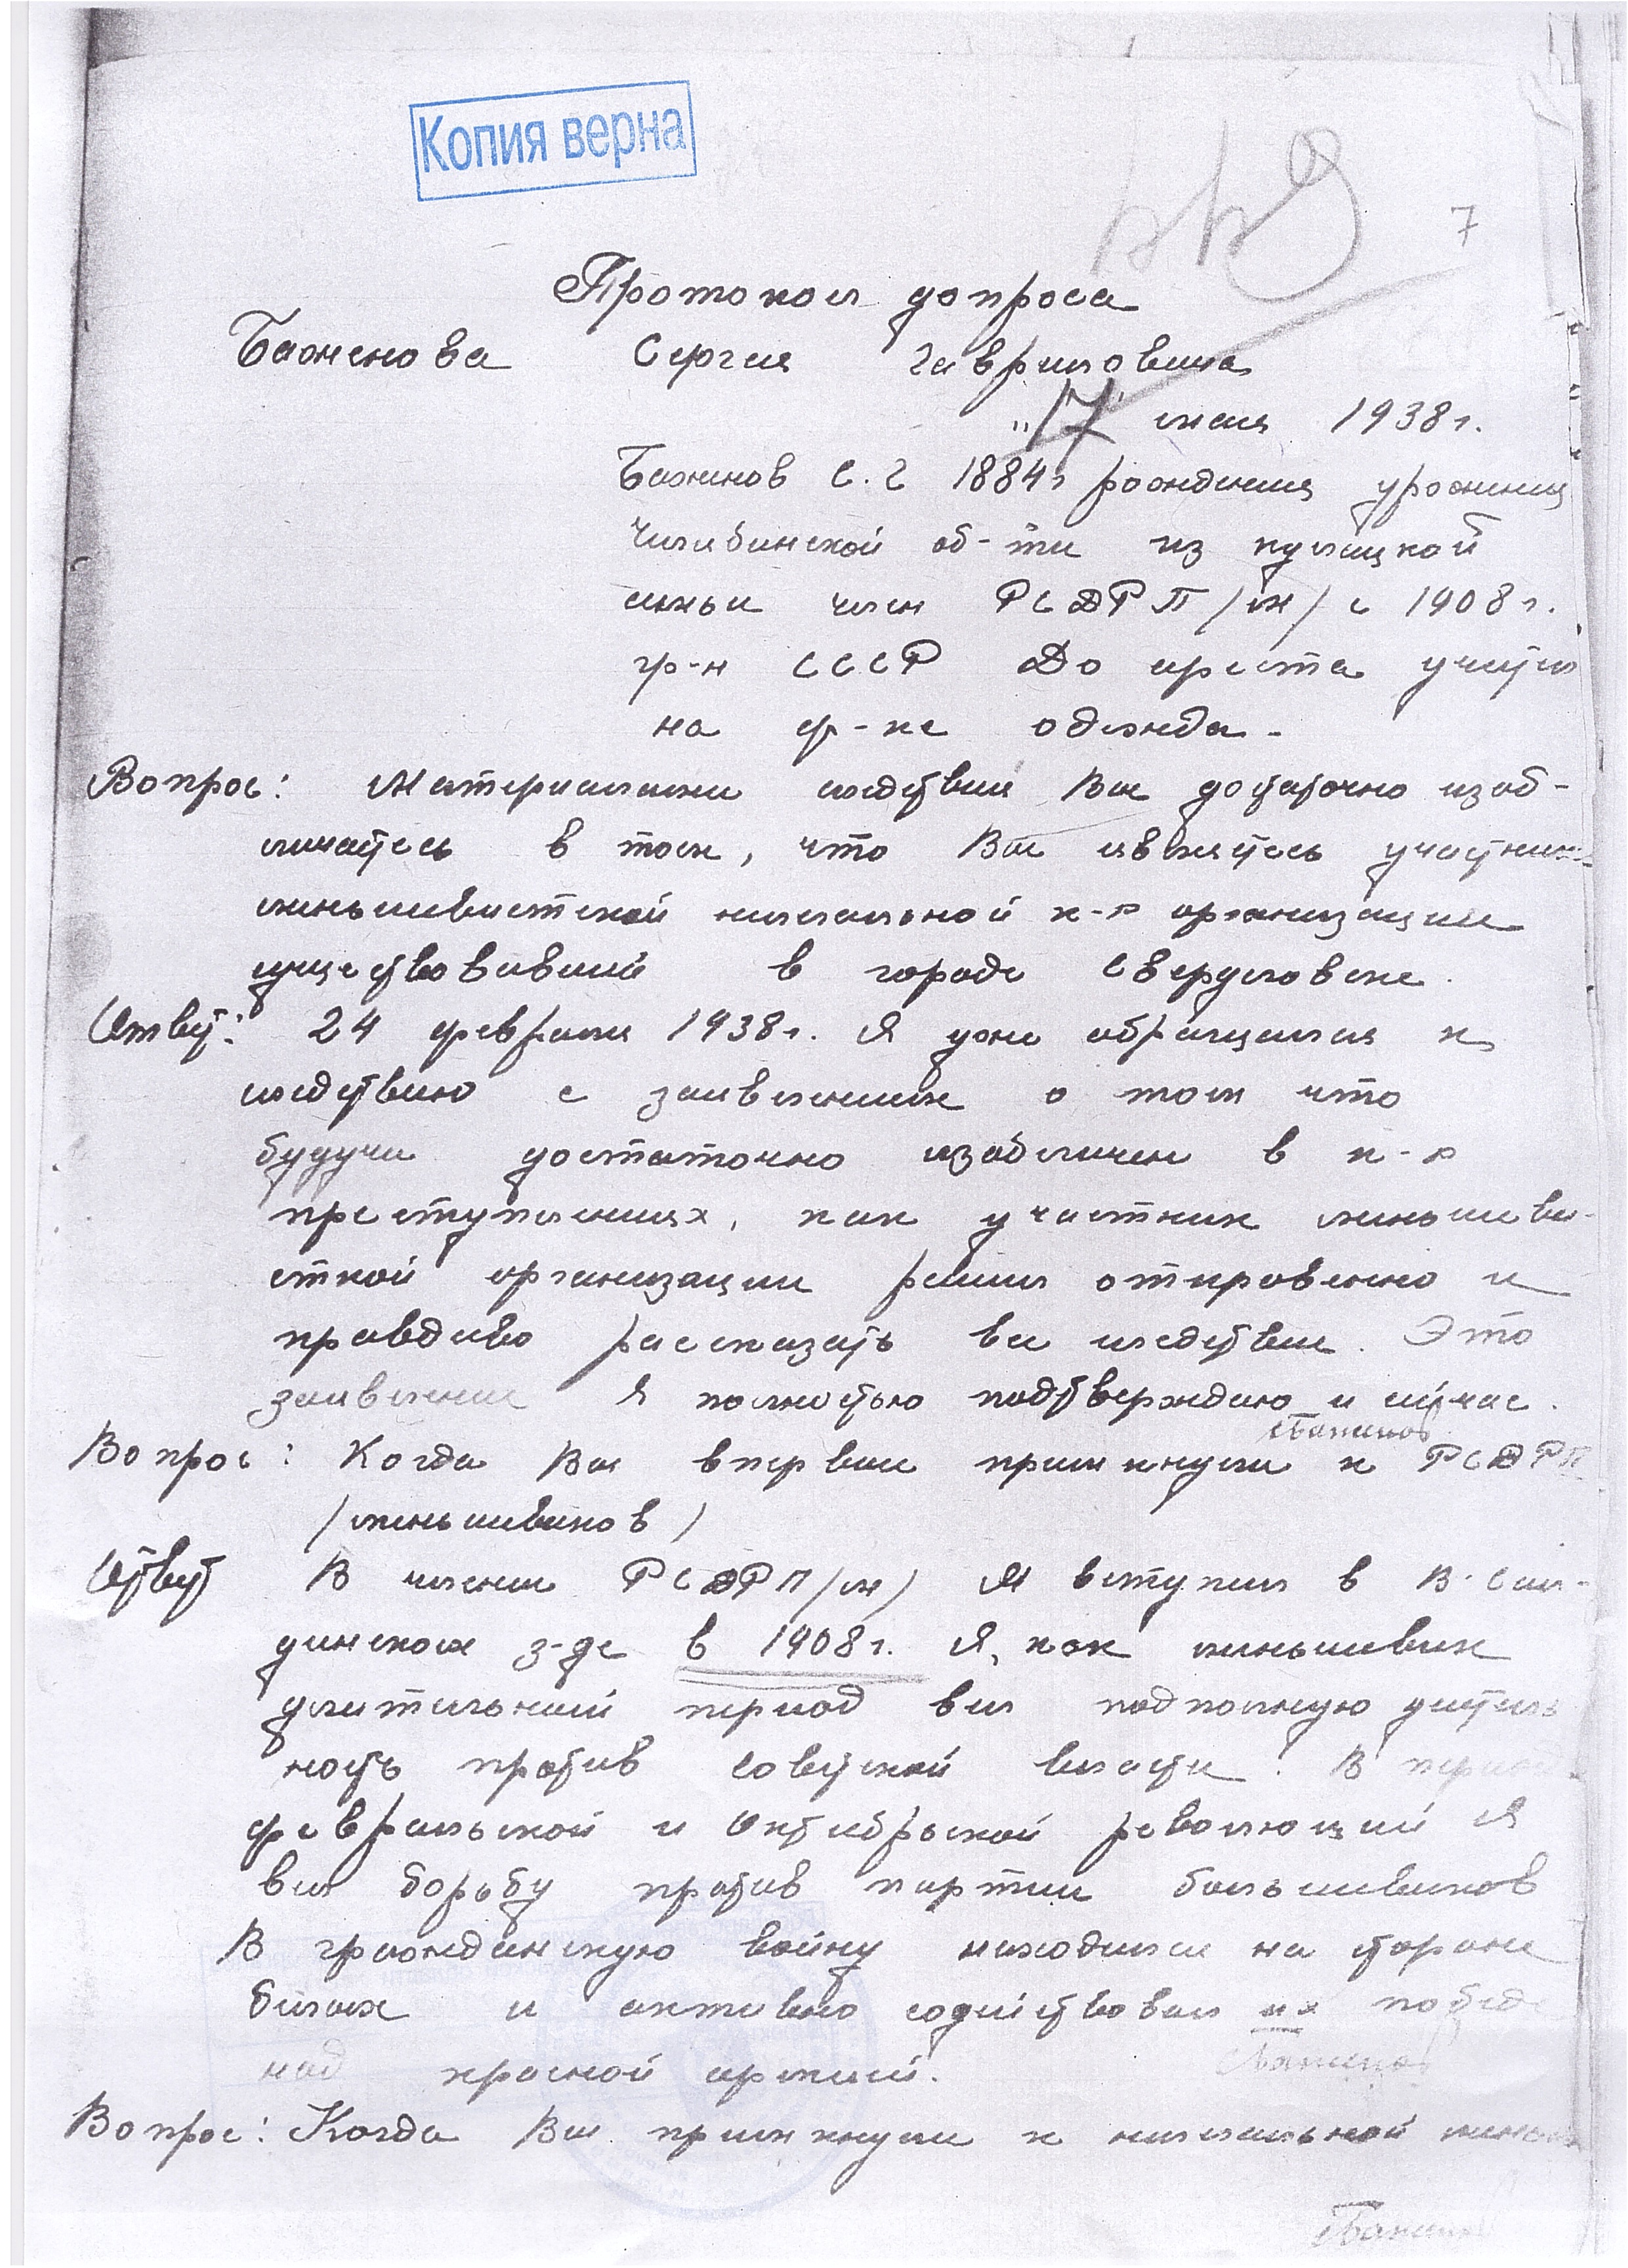 Копия верна
7
Протокол допроса
Баженова Сергея Гавриловича
"17" мая 1938г.
Баженов С.Г 1884г рождения уроженец
Челябинской об-ти из кулацкой
семьи член РСДРП/м/ с 1908г.
гр-н СССР До ареста учител
на ф-ке одежда-
Вопрос: Материалами следствия Вы достаточно изоб-
личаетесь в том, что Вы являетесь участник
меньшевистской нелегальной к-р организации
существовавшей в городе Свердловске.
Ответ: 24 февраля 1938г. Я уже обращался к
следствию с заявлением о том что
будучи достаточно изобличен в к-р
преступлениях, как участник меньшеви-
сткой организации решил откровенно и
правдиво рассказать все следствию. Это
заявление Я полностью подтверждаю и сейчас.
Баженов
Вопрос: Когда Вы впервые примкнули к РСДРП
/меньшевиков/
Ответ В члены РСДРП/м/ Я вступил в В. Сал-
динском з-де в 1908г. Я, как меньшевик
длительный период вел подпольную деятель
ность против советской власти. В период
февральской и Октябрьской революций Я
вел борьбу против партии большевиков
В гражданскую войну находился на стороне
белых и активно содействовал их победе
над красной армией.
Баженов
Вопрос: Когда Вы примкнули к нелегальной меньш
Баженов